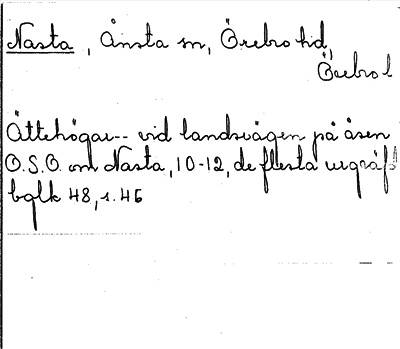 Nasta, Ånsta sn, Örebro hd,
Örebro l
Ättehögar-- vid landsvägen på åsen
O.S.O. om Nasta, 10-12, de flesta utgräf-
bqlk 48, s. 46